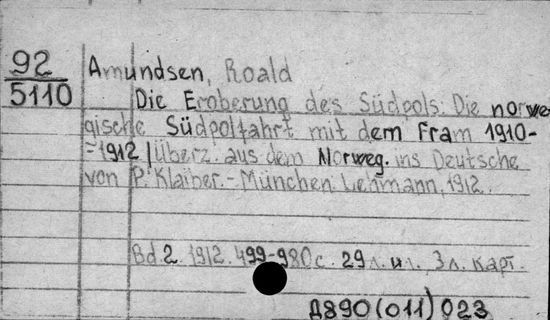 92
5110
Amundsen, Roald
Die Eroberung des Südpols: Die norwe-
gische Südpolfahrt mit dem Fram 1910-
-1912 / Überz. aus dem Norweg. ins Deutsche
von P. Klaiber. - München: Lehmann, 1912.
Bd. 2. 1912. 499-980 с. 29 л. ил., 3 л. карт.
Д890(011)023